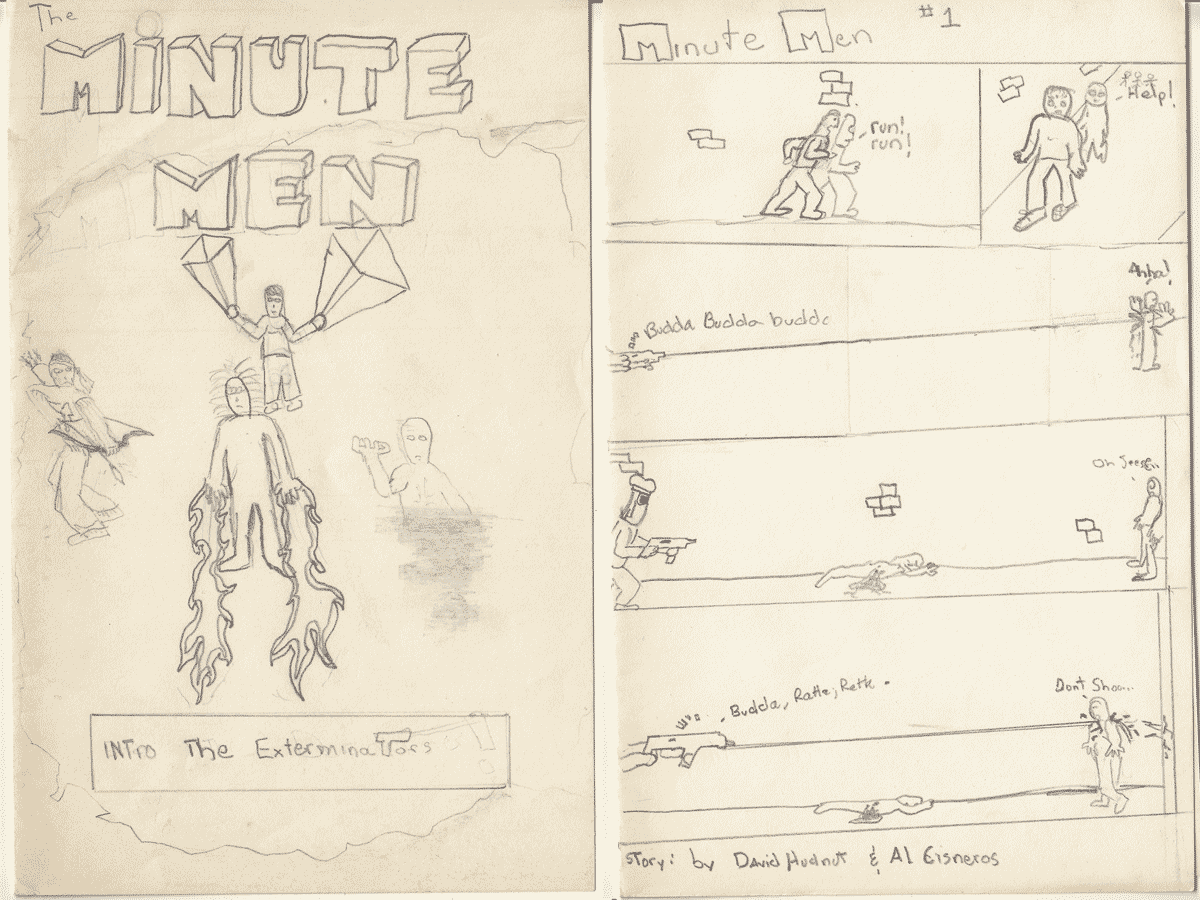 The
MINUTE
MEN
INTro The ExterminaTors
Minute Men #1
run!
run!
Help!
Ahha!
Budda Budda budda
Oh Jeesen
Budda, Ratle,
Dont Shoo..
STory: by David Hudnut & Al Cisneros